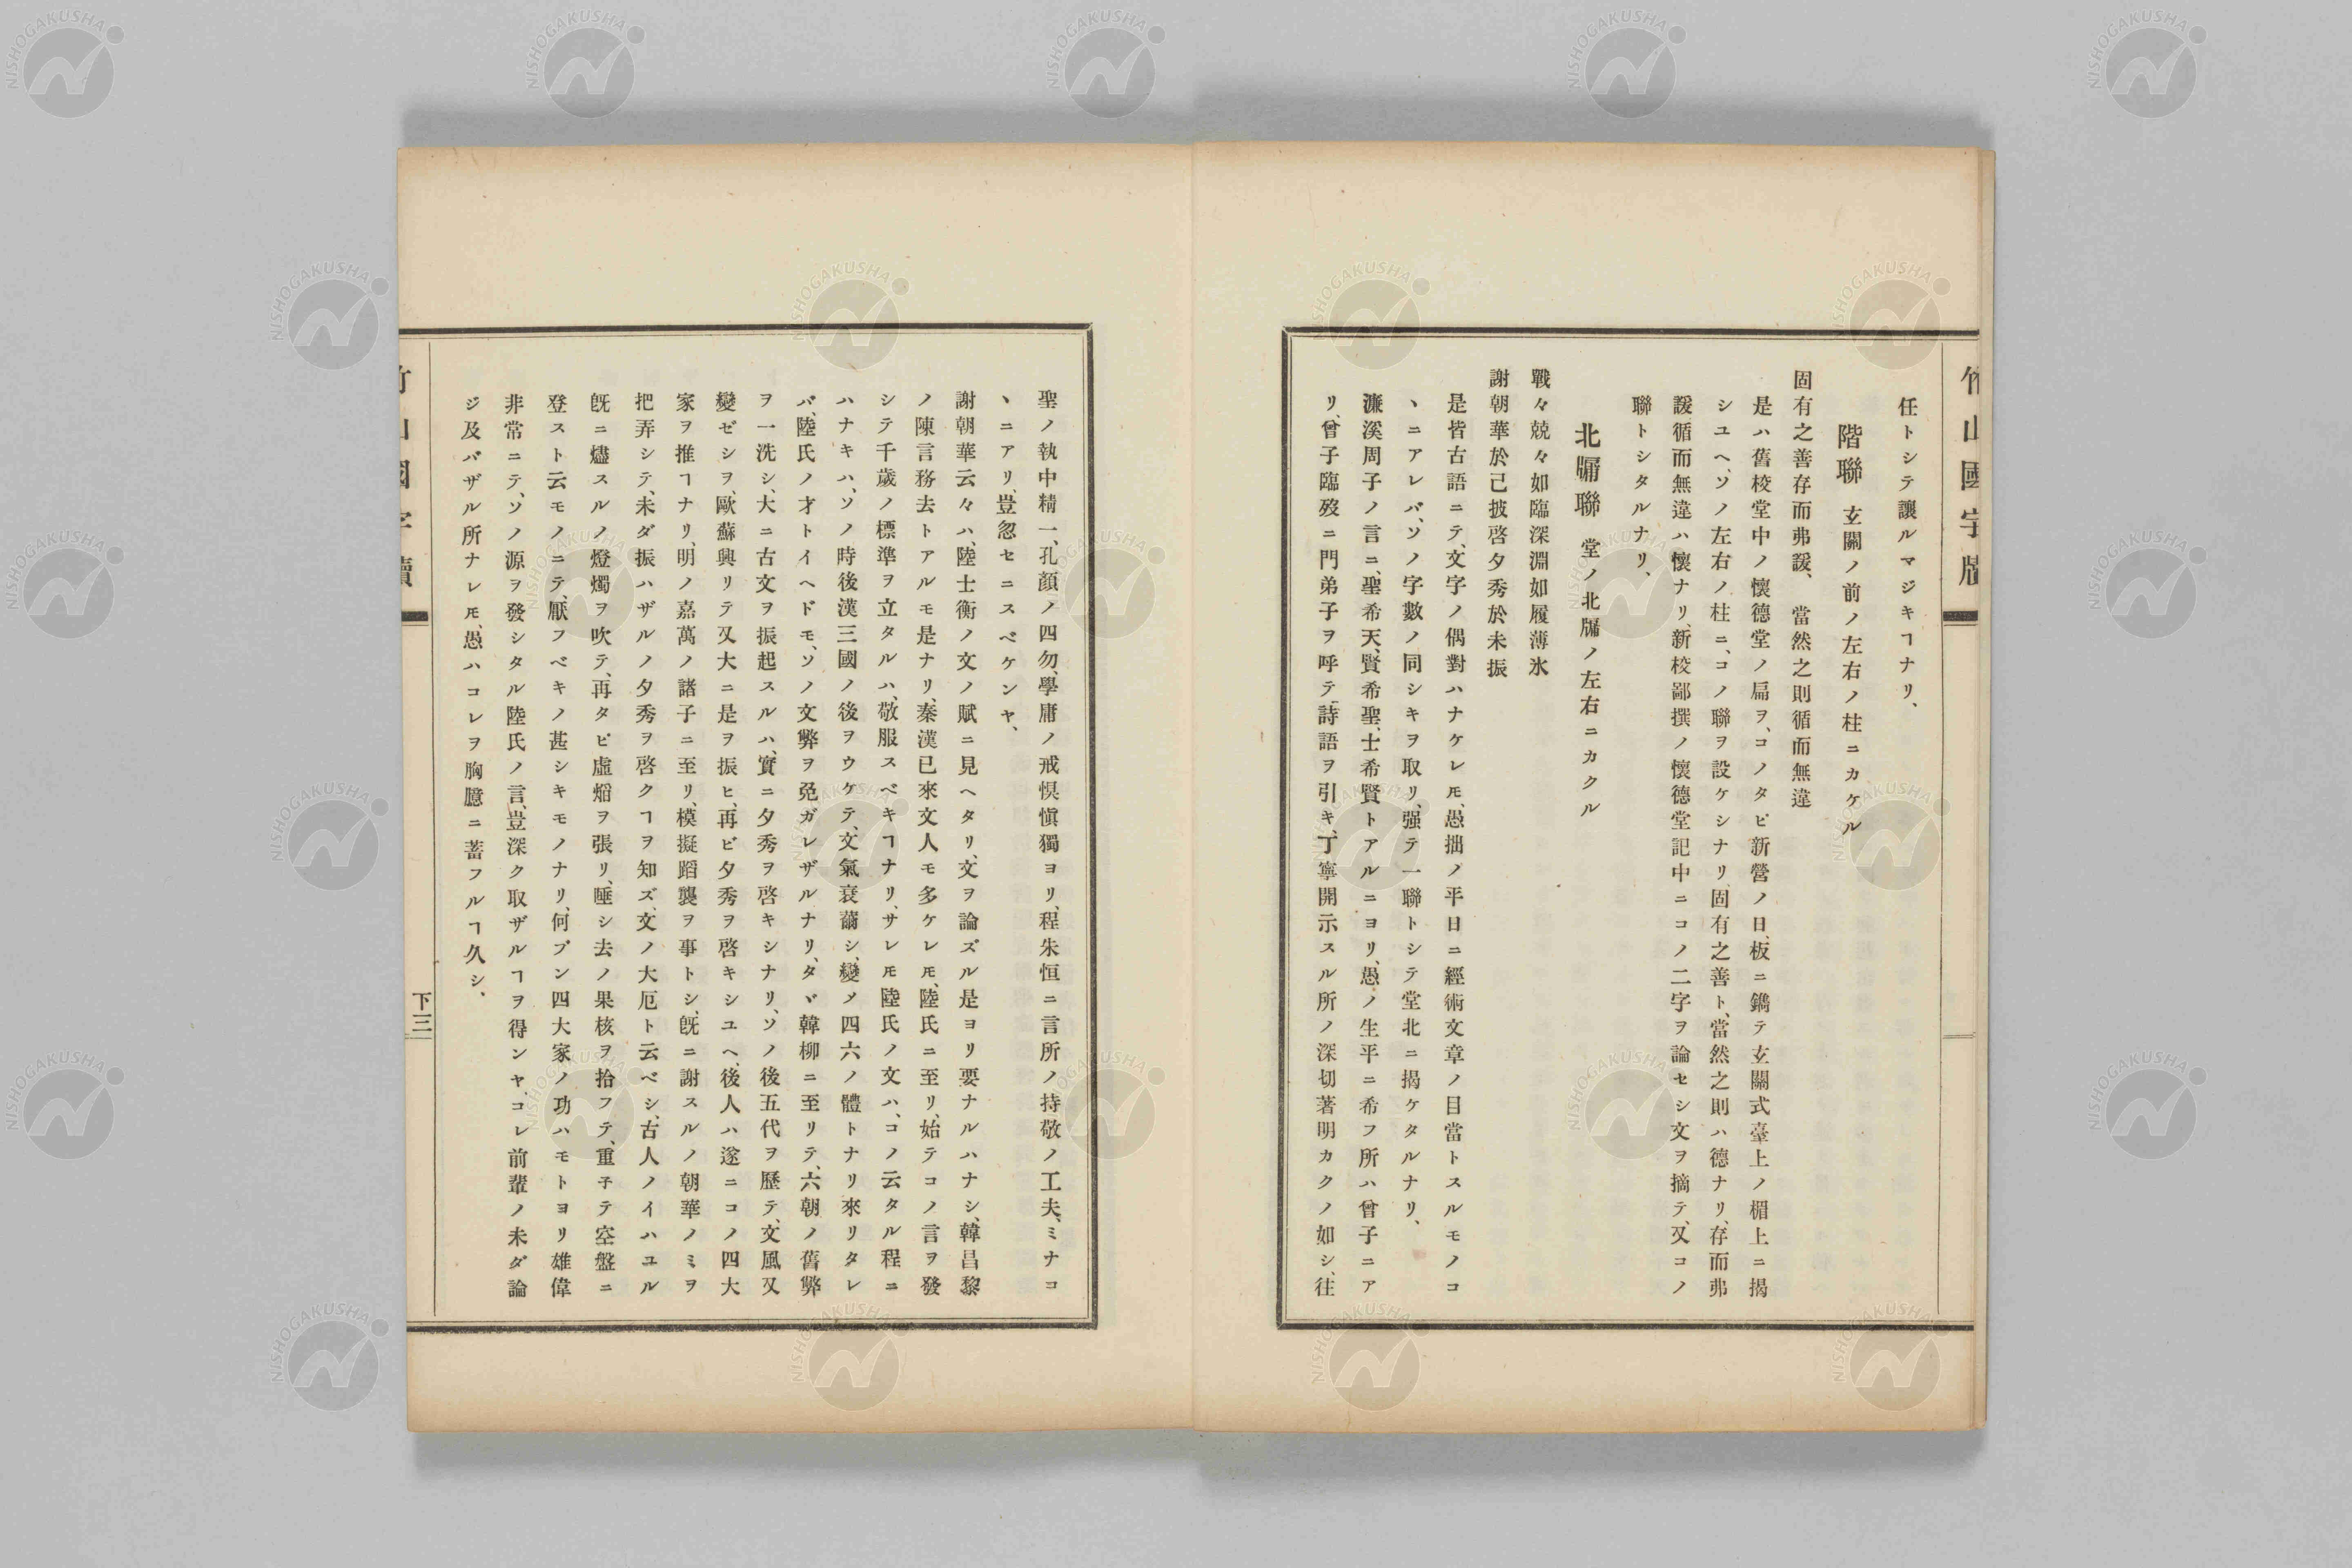 任トシテ讓ルマジキヿナリ、
階聯 玄關ノ前ノ左右ノ柱ニカケル
固有之善存而弗諼、當然之則循而無違
是ハ舊校堂中ノ懷德堂ノ扁ヲ、コノタビ新營ノ日、板ニ鐫テ玄關式臺上ノ楣上ニ揭
シユヘ、ソノ左右ノ柱ニ、コノ聯ヲ設ケシナリ、固有之善ト、當然之則ハ德ナリ、存而弗
諼、循而無違ハ懷ナリ、新校鄙撰ノ懷德堂記中ニコノ二字ヲ論セシ文ヲ摘テ、又コノ
聯トシタルナリ、
北牖聯 堂ノ北牖ノ左右ニカクル
戰々兢々如臨深淵如履薄氷
謝朝華於已披啓夕秀於未振
是皆古語ニテ、文字ノ偶對ハナケレ𪜈、愚拙ノ平日ニ經術文章ノ目當トスルモノコ
ヽニアレバ、ソノ字數ノ同シキヲ取リ、强テ一聯トシテ堂北ニ揭ケタルナリ、
濂溪周子ノ言ニ、聖希天、賢希聖、士希賢トアルニヨリ、愚ノ生平ニ希フ所ハ曾子ニア
リ、曾子臨歿ニ門弟子ヲ呼テ、詩語ヲ引キ、丁寧開示スル所ノ深切著明カクノ如シ、往
聖ノ執中精一、孔顏ノ四勿、學庸ノ戒愼獨ヨリ、程朱恒ニ言所ノ持敬ノ工夫、ミナコ
ヽニアリ、豈忽セニスベケンヤ、
謝朝華云々ハ、陸士衡ノ文ノ賦ニ見ヘタリ、文ヲ論ズル是ヨリ要ナルハナシ、韓昌黎
ノ陳言務去トアルモ是ナリ、秦漢已來文人モ多ケレ𪜈、陸氏ニ至リ、始テコノ言ヲ發
シテ千歲ノ標準ヲ立タルハ、敬服スベキヿナリ、サレ𪜈陸氏ノ文ハ、コノ云タル程ニ
ハナキハ、ソノ時後漢三國ノ後ヲウケテ、文氣衰薾シ、變メ四六ノ體トナリ來リタレ
バ、陸氏ノ才トイヘドモ、ソノ文弊ヲ免ガレザルナリ、タヾ韓柳ニ至リテ、六朝ノ舊弊
ヲ一洗シ、大ニ古文ヲ振起スルハ、實ニ夕秀ヲ啓キシナリ、ソノ後五代ヲ歷テ、文風又
變ゼシヲ、歐蘇興リテ又大ニ是ヲ振ヒ、再ビ夕秀ヲ啓キシユヘ、後人ハ遂ニコノ四大
家ヲ推ヿナリ、明ノ嘉萬ノ諸子ニ至リ、模擬蹈襲ヲ事トシ、旣ニ謝スルノ朝華ノミヲ
把弄シテ、未ダ振ハザルノ夕秀ヲ啓クヿヲ知ズ、文ノ大厄ト云ベシ、古人ノイハユル
旣ニ燼スルノ燈燭ヲ吹テ、再タビ虛焰ヲ張リ、唾シ去ノ果核ヲ拾フテ、重子テ空盤ニ
登スト云モノニテ、厭フベキノ甚シキモノナリ、何ブン四大家ノ功ハモトヨリ雄偉
非常ニテ、ソノ源ヲ發シタル陸氏ノ言、豈深ク取ザルヿヲ得ンヤ、コレ前輩ノ未ダ論
ジ及バザル所ナレ𪜈、愚ハコレヲ胸臆ニ蓄フルヿ久シ、
下三
NISHOGAKUSHA